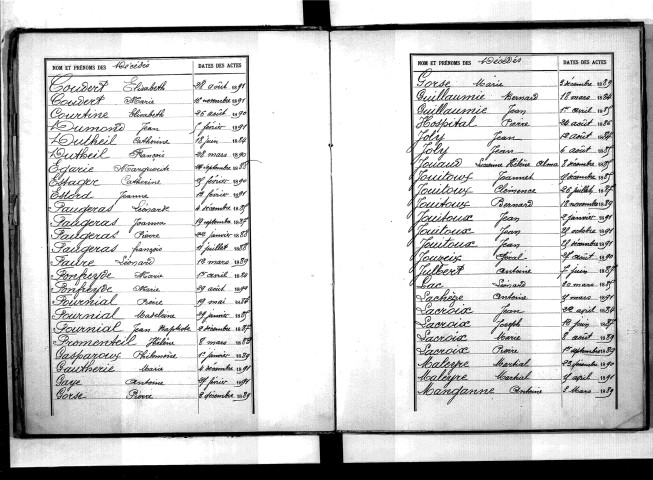 NOM ET PRÉNOMS DES Décédés DATES DES ACTES
Coudert Elisabeth 28 août 1891
Coudert Marie 18 novembre 1891
Courtine Elisabeth 25 août 1890
Dumond Jean février 1891
Dutheil Catherine 18 juin 1884
Dutheil François 28 mars 1890
Egarie Marguerite septembre 1888
Estager Catherine 27 février 1890
Estord Jeanne 12 février 1891
Faugeras Léonarde 4 décembre 1885
Faugeras Joanna 19 septembre 1887
Faugeras Pierre 22 janvier 1888
Faugeras françois 11 juillet 1888
Faure Léonard 12 mars 1889
Fonfreyde Marie 1er avril 1884
Fonfreyde Marie 29 août 1890
Fournial Reine 19 mai 1884
Fournial Madelaine 29 janvier 1885
Fournial Jean Baptiste 2 décembre 1887
Fromenteil Hélène 8 mars 1889
Gasparoux Philomène 1er janvier 1889
Gautherie Marie 4 décembre 1891
Gaye Antoine 27 février 1891
Gorse Pierre 2 décembre 1889
NOM ET PRÉNOMS DES Décédés DATES DES ACTES
Gorse Marie 3 décembre 1889
Guillaumie Bernard 18 mars 1884
Guillaumie Jean 1er avril 1885
Hospital Pierre 24 août 1886
Joly Jean 12 août 1884
Joly Jean 6 août 1885
Jouaud Hélène Alma 3 décembre 1885
Jouitoux Jeannet 9 décembre 1885
Jouitoux Clémence 26 juillet 1887
Jouitoux Bernard 18 novembre 1889
Jouitoux Jean 2 janvier 1891
Jouitoux Jean 21 octobre 1891
Jouitoux Jean 21 décembre 1891
Joureix 27 août 1890
Julbert Antoine 7 juin 1885
Lac Léonard 20 mars 1885
Lachèze Antoine 7 mars 1891
Lacroix Jean 22 avril 1884
Lacroix Joseph 12 juin 1887
Lacroix Marie 8 août 1889
Lacroix Pierre 1er septembre 1889
Maleyre Martial 23 décembre 1890
Maleyre Martial 7 avril 1891
Manganne Antoine 2 Mars 1889